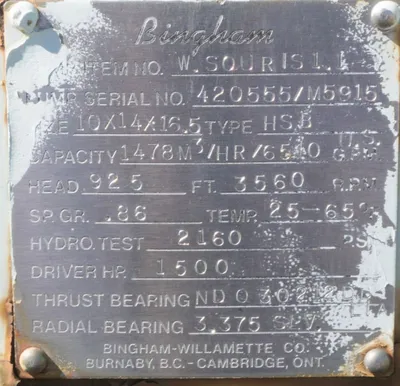 Bingham
ITEM NO. W. SOURIS 1.1
PUMP SERIAL NO. 420555/M5915
SIZE 10X14X16.5 TYPE HSB
CAPACITY 1478M³/HR/6510 U.S. G.P.M.
HEAD 925 FT. 3560 R.P.M.
SP. GR. .86 TEMP. 25-65°
HYDRO. TEST 2160 P.S.I.
DRIVER HP. 1500
THRUST BEARING ND 030
RADIAL BEARING 3.375
BINGHAM-WILLAMETTE CO.
BURNABY, B.C. - CAMBRIDGE, ONT.